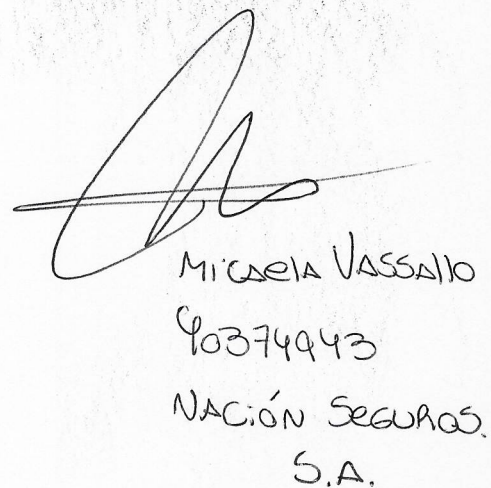 Micaela Vassallo
40374943
Nación Seguros.
S.A.